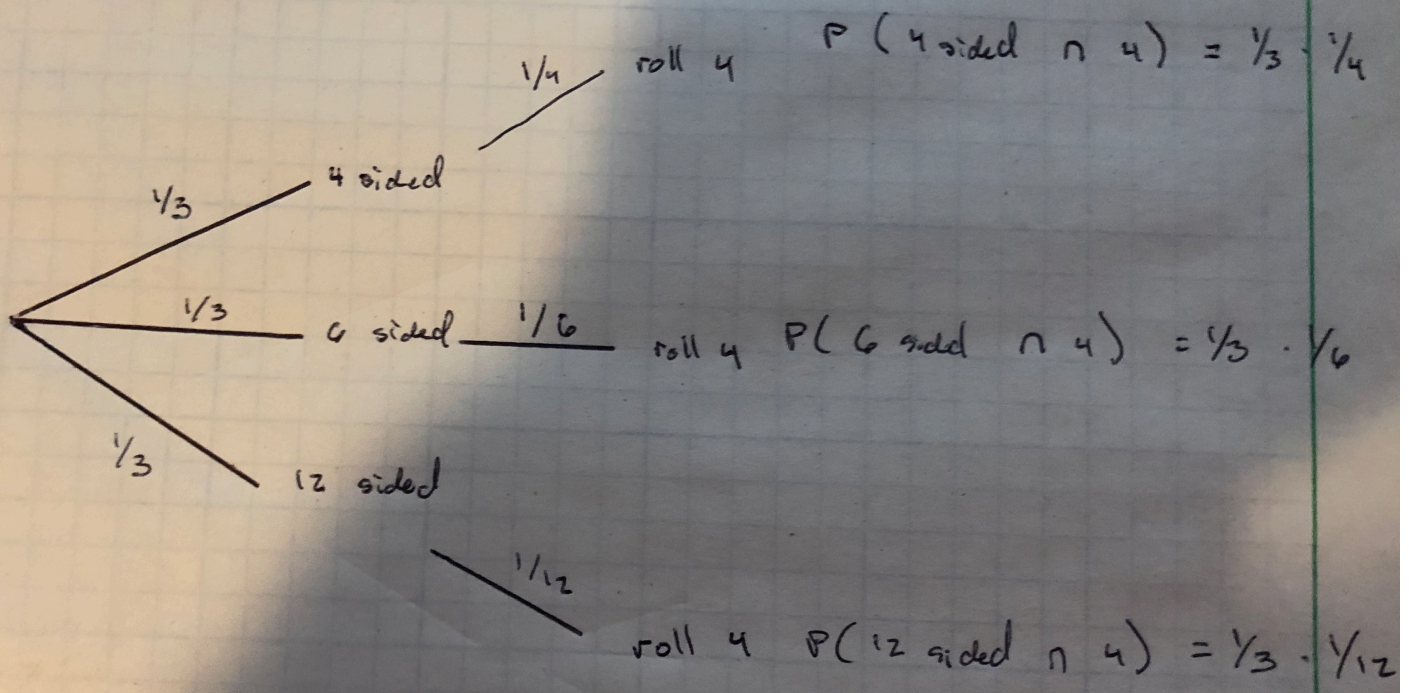 1/4 roll 4 P ( 4 sided ∩ 4 ) = 1/3 · 1/4
1/3 4 sided
1/3 6 sided 1/6 roll 4 P( 6 sided ∩ 4 ) = 1/3 · 1/6
1/3 12 sided
1/12
roll 4 P( 12 sided ∩ 4 ) = 1/3 · 1/12